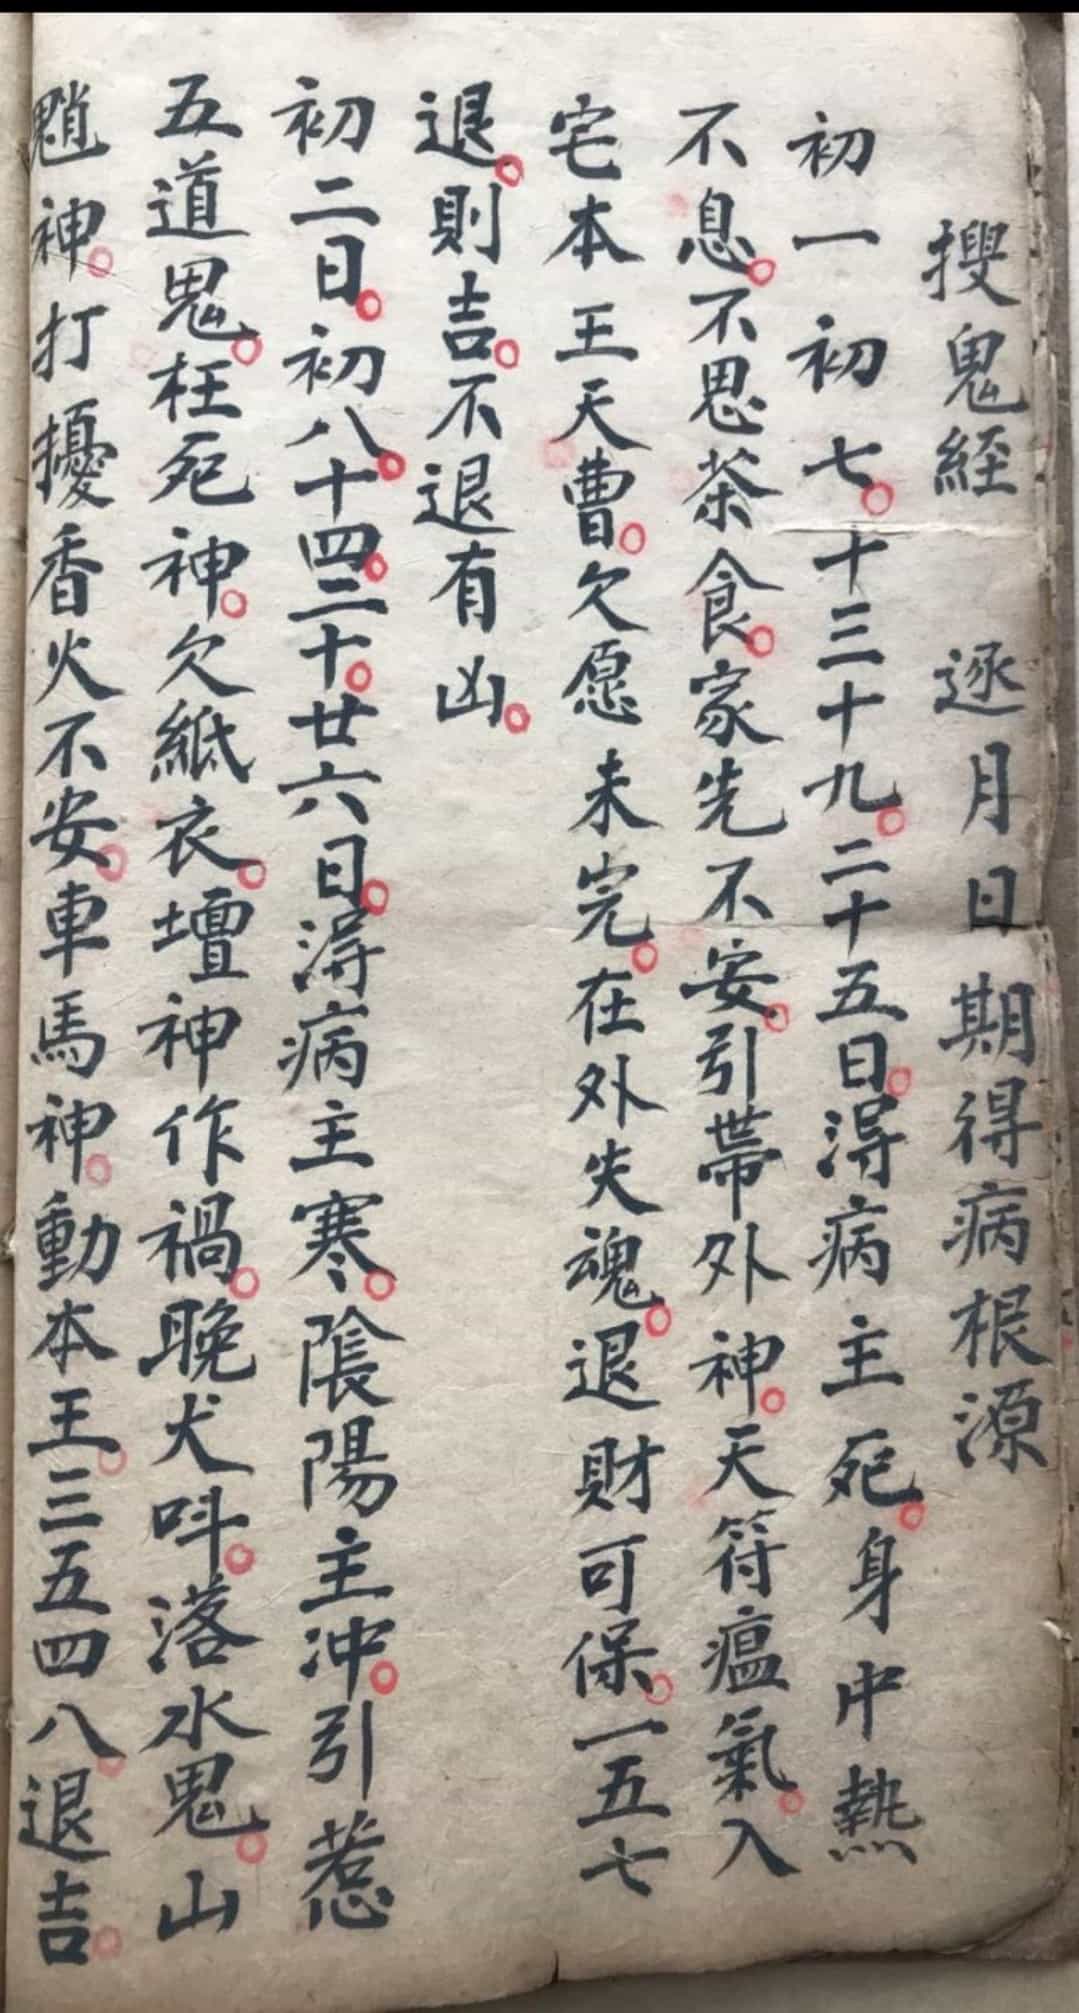 搜鬼經　逐月日期得病根源
初一初七。十三十九。二十五日。淂病主死。身中熱
不息。不思茶食。家先不安。引帶外神。天符瘟氣。入
宅本王天曹。欠愿未完。在外失魂。退財可保。一五七
退。則吉。不退有凶。
初二日。初八。十四。二十。廿六日。淂病主寒。陰陽主冲。引惹
五道鬼。枉死神。欠紙衣。壇神作禍。晚犬呌。落水鬼。山
魈神。打擾香火不安。車馬神。動本王。三五四八。退吉。